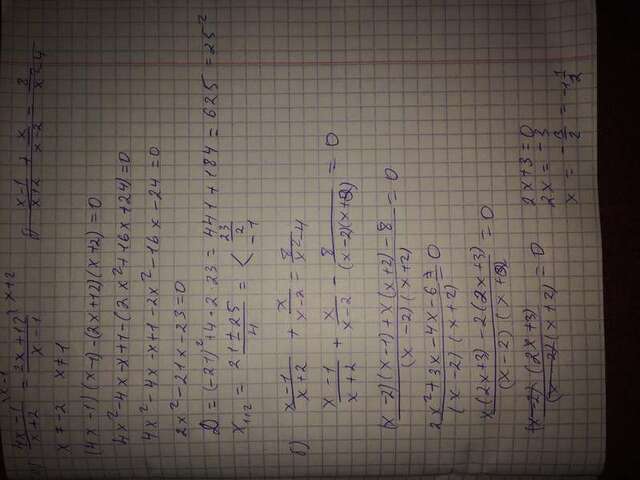 а) (4x-1)/(x+2) \ x-1 = (2x+12)/(x-1) \ x+2   б) (x-1)/(x+2) + x/(x-2) = 8/(x²-4)
x ≠ -2   x ≠ 1
(4x-1)(x-1)-(2x+12)(x+2)=0
4x²-4x-x+1-(2x²+16x+24)=0
4x²-4x-x+1-2x²-16x-24=0
2x²-21x-23=0
D = (-21)²+4·2·23 = 441+184 = 625 = 25²
x₁,₂ = (21±25)/4 = < 23/2
-1
б) (x-1)/(x+2) + x/(x-2) = 8/(x²-4)
(x-1)/(x+2) + x/(x-2) - 8/((x-2)(x+2)) = 0
((x-2)(x-1)+x(x+2)-8)/((x-2)(x+2)) = 0
(2x²+3x-4x-6)/((x-2)(x+2)) = 0
(x(2x+3)-2(2x+3))/((x-2)(x+2)) = 0
((x-2)(2x+3))/((x-2)(x+2)) = 0
2x+3=0
2x = -3
x = -3/2 = -1 1/2